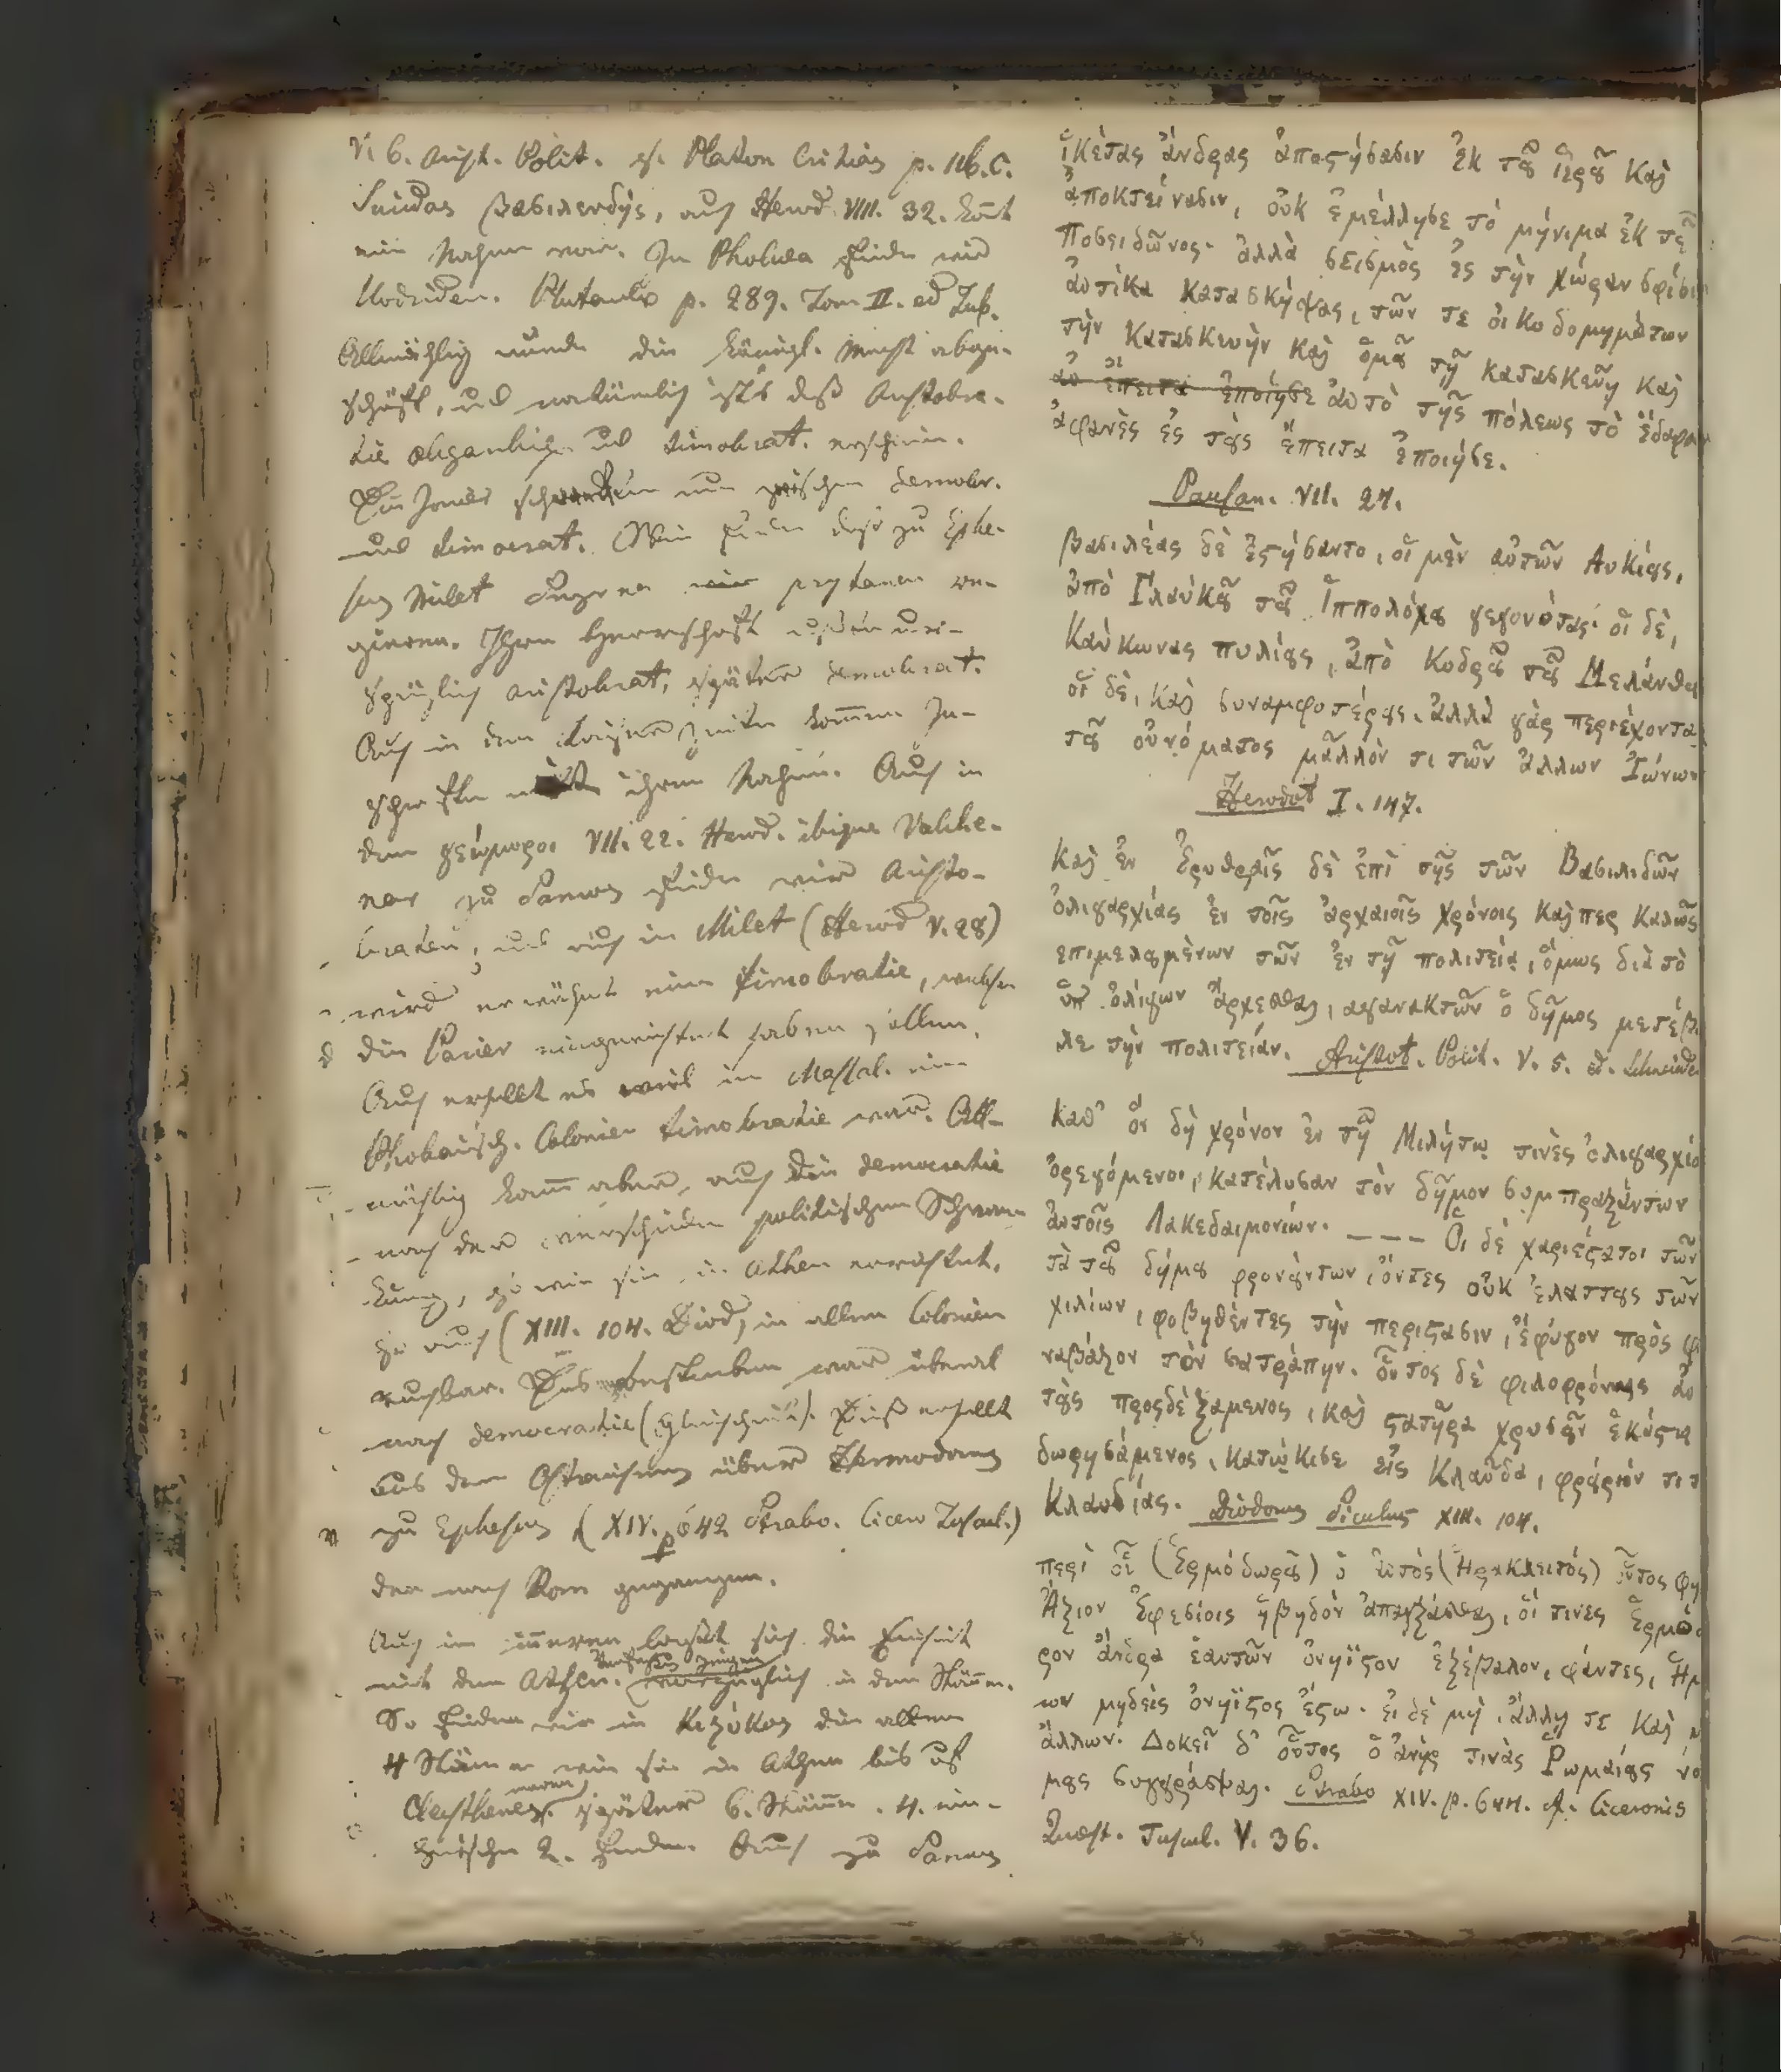 V. 6. Arist. Polit. cf. Platon Critias p. 116. C.
Suidas βασιλενδης, auch Herod. VIII. 32. komt
ein Nahme vor. In Phokaea finden wir
Kodriden. Plutarch p. 289. Tom II. ed
Allmählig wurde die königl. Macht abge-
schafft, und natürlich ists daß Aristokra-
tie oligarchisch und timokrat. erscheinen.
Die Jonier nun zwischen demokr.
und timocrat. Wir finden daß zu Ephe-
sus Milet Smyrna prytanen re-
gieren. Ihre Herrschaft ur-
sprünglich aristokrat. später demokrat.
Auch in den Kaiserzeiten kommen In-
schriften mit ihren Nahmen. Auch in
den γεώμοροι VII. 22. Herod. ibique Valcke-
nar zu Samos finden wir Aristo-
kraten, und auch in Milet (Herod V. 28)
wird erwähnt eine timokratie, welche
die Parier eingerichtet haben sollen.
Auch erhellt es weil in Massal. eine
Phokäisch. Colonien timokratie war. All-
mählig kam aber, auch die democratie
nach der verschieden politischen Schwan-
kung, so wie sie in Athen
so auch (XIII. 104. Diod) in allen Colonien
war überal
nach democratie (Gleichheit). Dieß erhellt
aus dem Ostracismus über Hermodorus
zu Ephesus (XIV. p 642 Strabo. Cicero Tuscul.)
der nach Rom gegangen.
Auch im inneren sich die Einheit
mit den Athen. vorzüglich in den Stämm.
So finden wir in Κυζύκος die alten
4 Stämme wie sie in Athen bis auf
Clesthenes waren. später 6. Stämme. 4. ein-
2. finden. Auch zu Samos
ἱκέτας ἄνδρας ἀποστήσασιν ἐκ τοῦ ἱεροῦ καὶ
ἀποκτείνασιν, οὐκ ἐμέλλησε τὸ μήνιμα ἐκ τοῦ
Ποσειδῶνος· ἀλλὰ σεισμὸς ἐς τὴν χώραν σφίσιν
αὐτίκα κατασκήψας, τῶν τε οἰκοδομημάτων
τὴν κατασκευὴν καὶ ὁμοῦ τῇ κατασκευῇ καὶ
ἔπειτα ἐποίησε αὐτὸ τῆς πόλεως τὸ ἔδαφος
ἀφανὲς ἐς τοὺς ἔπειτα ἐποίησε.
Pausan. VII. 24.
βασιλέας δὲ ἐστήσαντο, οἱ μὲν αὐτῶν Λυκίους,
ἀπὸ Γλαύκου τοῦ Ἱππολόχου γεγονότας· οἱ δὲ,
Καύκωνας πυλίους, ἀπὸ Κοδροῦ τοῦ Μελάνθου
οἱ δὲ, καὶ συναμφοτέρους. ἀλλὰ γὰρ περιέχονται
τοῦ οὐνόματος μᾶλλόν τι τῶν ἄλλων Ἰώνων
Herodot I. 147.
καὶ ἐν Ἐρυθραῖς δὲ ἐπὶ τῆς τῶν Βασιλιδῶν
ὀλιγαρχίας ἐν τοῖς ἀρχαιοῖς χρόνοις καίπερ καλῶς
επιμελουμένων τῶν ἐν τῇ πολιτείᾳ, ὅμως διὰ τὸ
ὑπ' ὀλίγων ἄρχεσθαι, αγανακτῶν ὁ δῆμος μετέβα
λε τὴν πολιτείαν. Aristot. Polit. V. 5. ed. Schneider
καθ' ὃν δὴ χρόνον ἐν τῇ Μιλήτῳ τινὲς ὀλιγαρχίας
ὀρεγόμενοι, κατέλυσαν τὸν δῆμον συμπραξάντων
αὐτοῖς Λακεδαιμονίων. – – – Οἱ δὲ χαριέστατοι τῶν
τὰ τοῦ δήμου φρονούντων, ὄντες οὐκ ἐλάττους τῶν
χιλίων, φοβηθέντες τὴν περίστασιν, ἔφυγον πρὸς Φα
ναβάζον τὸν σατράπην. οὗτος δὲ φιλοφρόνως αὐ
τοὺς προςδεξάμενος, καὶ στατῆρα χρυσοῦν ἑκάστῳ
δωρησάμενος, κατῴκισε εἰς Κλαῦδα, φρούριόν τι τ
Κλαυδίας. Diodorus Siculus XIII. 104.
περὶ οὗ (Ἑρμόδωροῦ) ὁ αὐτὸς (Ἡρακλειτός) οὗτος φη
Ἄξιον Ἐφεσίοις ἡβηδὸν ἀπαγξάσθαι, οἵ τινες Ἑρμό
ρον ἄνδρα ἑαυτῶν ὀνηΐστον ἐξέβαλον, φάντες, Ἡμ
ων μηδεὶς ὀνηϊστος ἔστω. εἰ δὲ μὴ, ἄλλῃ τε καὶ μ
ἄλλων. Δοκεῖ δ' οὗτος ὁ ἀνὴρ τινὰς Ῥωμαίοις νό
μους συγγράψαι. Strabo XIV. p. 644. cf. Ciceronis
Quæst. Tuscul. V. 36.